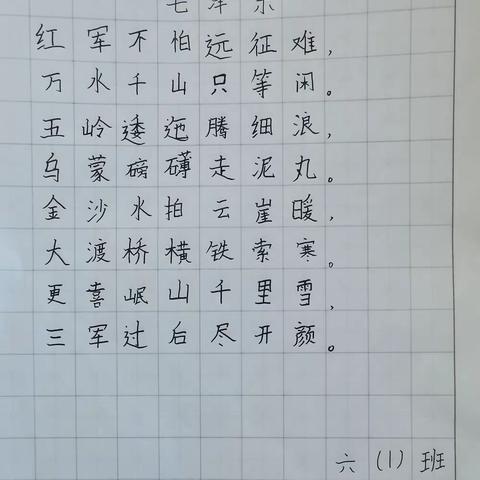 毛泽东
红军不怕远征难，
万水千山只等闲。
五岭逶迤腾细浪，
乌蒙磅礴走泥丸。
金沙水拍云崖暖，
大渡桥横铁索寒。
更喜岷山千里雪，
三军过后尽开颜。
六（1）班